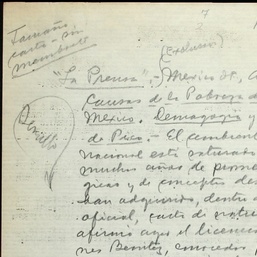 7
Tamaño
carta - sin
membrete
(Exclusivo)
"La Prensa".- Mexico
Causas de la Pobreza
Mexico. Demagogia y
de Pico.- El ambiente
nacional está saturado
muchos años de
y de conceptos
han adquirido, dentro
oficial, carta de
afirmó ayer el licencia
nes Benitez, conocedo
Sencillo